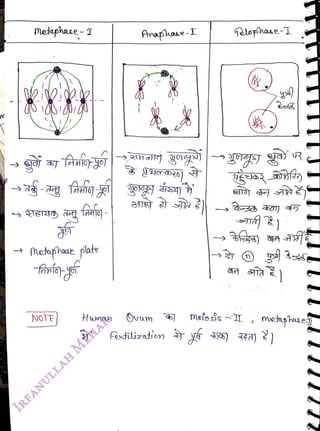 Metaphase - I
Anaphase - I
Telophase - I
पुत्री
केन्द्रक
→ ध्रुवों का निर्माण-पूर्ण
→ तर्कु-तन्तु निर्माण-पूर्ण
→ सहायक तन्तु निर्माण-
पूर्ण
→ Metaphase plate
निर्माण-पूर्ण
→ समजात गुणसूत्रों
के पृथक्करण से
गुणसूत्र संख्या में
आधी हो जाते है।
→ गुणसूत्र ध्रुवों पर
पहुंचकर क्रोमेटिन
धागे बन जाते है।
→ केन्द्रक कला बन
जाती है।
→ केन्द्रिका बन जाती है
→ दो n पुत्री केन्द्रक
बन जाते है।
NOTE
Human Ovum का Meiosis - II , metaphase II
में Fertilization से पूर्व रुका रहता है।
IRFANULLAH